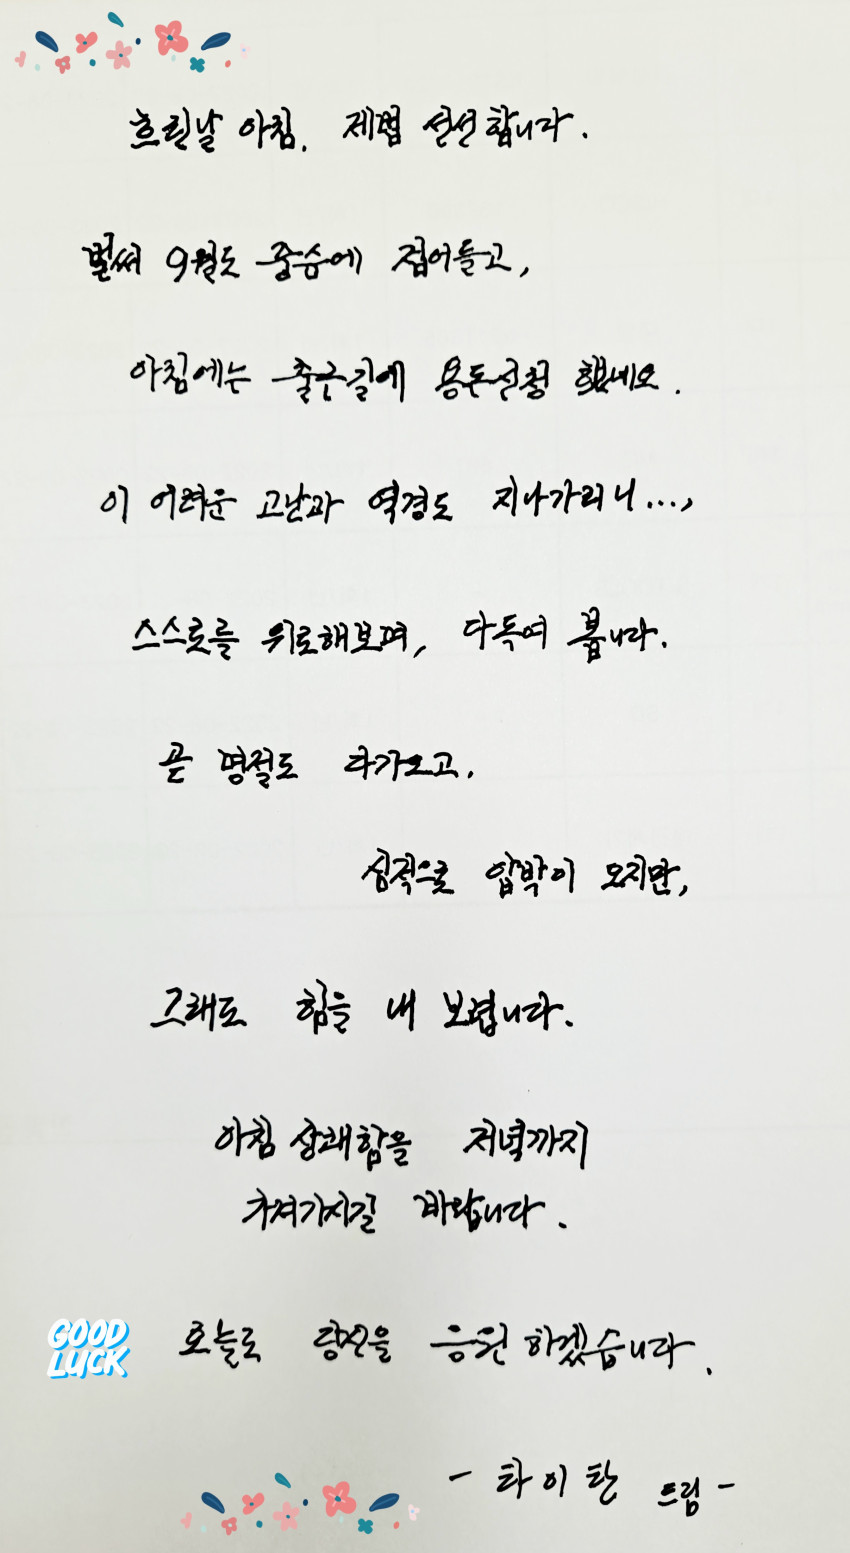 흐린날 아침, 제법 선선합니다.
벌써 9월도 중순에 접어들고,
아침에는 출근길에 용돈신청 했네요.
이 어려운 고난과 역경도 지나가리니...,
스스로를 위로해보며, 다독여 봅니다.
곧 명절도 다가오고,
심적으로 압박이 오지만,
그래도 힘을 내 보렵니다.
아침 상쾌함을 저녁까지
가져가시길 바랍니다.
GOOD LUCK
오늘도 당신을 응원하겠습니다.
- 타이탄 드림 -